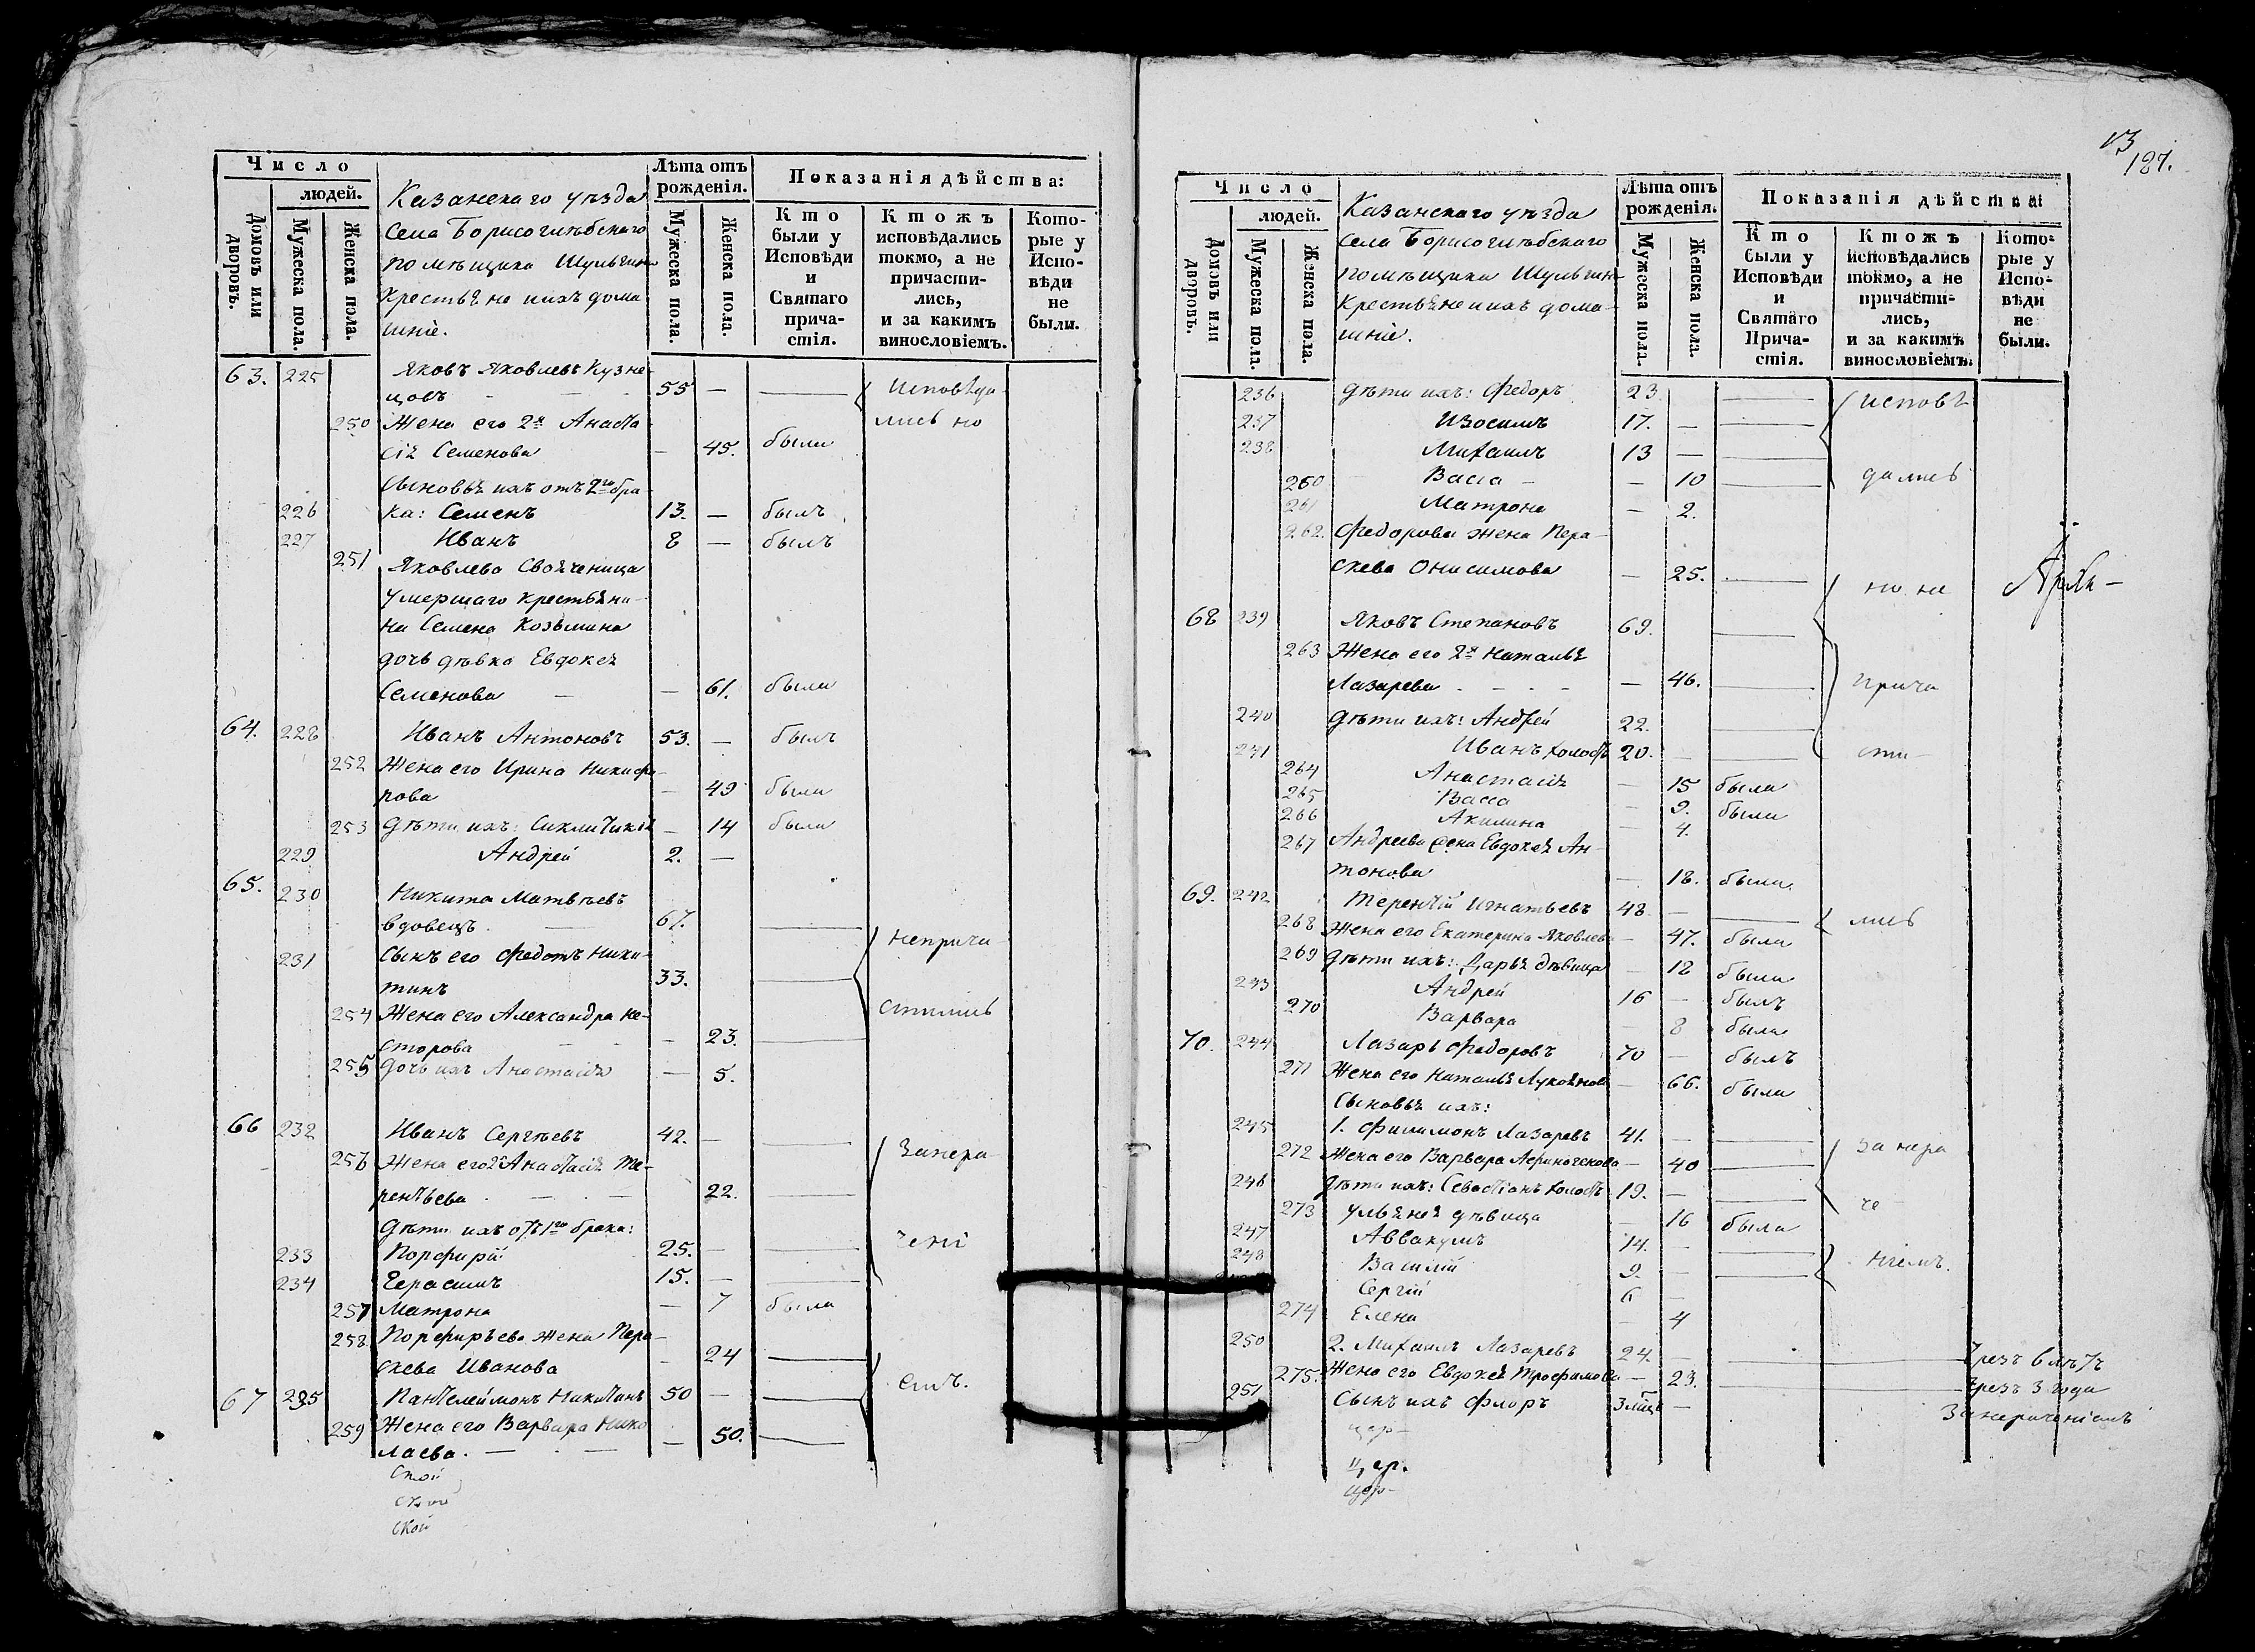 Число
людей.
Домовъ или дворовъ.
Мужеска пола.
Женска пола.
Казанскаго уѣзда
Села Борисоглѣбскаго
помѣщика Шульгина
Крестьяне и ихъ дома
шніе.
Лѣта отъ рожденія.
Мужеска пола.
Женска пола.
Показанія дѣйства:
Кто были у Исповѣди и Святаго причастія.
Ктожъ исповѣдались токмо, а не причастились, и за какимъ винословіемъ.
Которые у Исповѣди не были.
63. 225 Яковъ Яковлевъ Кузне-
цовъ - - 55 — — Исповѣда-
250 Жена его 2я Анаста лись но
сія Семенова — 45. была
Сыновья ихъ отъ 2го бра-
226 ка: Семенъ 13. — былъ
227 Иванъ 8 — былъ
251 Яковлева Свояченица
умершаго крестьяни-
на Семена Козьмина
дочь дѣвка Евдокея
Семенова — — 61. была
64. 228 Иванъ Антоновъ 53. — былъ
252 Жена его Ирина Никифо-
рова — 49 была
253 Дѣти ихъ: Сиклитикія — 14 была
229 Андрей 2. —
65. 230 Никита Матвѣевъ
вдовецъ. — 67. — неприча-
231 Сынъ его Федотъ Ники-
тинъ 33. —
254 Жена его Александра Не- стились
сторова — 23. —
255 дочь ихъ Анастасія — 5.
66 232 Иванъ Сергѣевъ 42. — —
256 Жена его 2я Анастасія Те- Занера-
рентьева . — — 22. —
Дѣти ихъ отъ 1го брака:
233 Порфирій 25. — — чені
234 Герасимъ 15. — —
257 Матрона — 7 была
258 Порфирьева жена Пера-
скева Иванова — 24 —
67 235 Пантелеймонъ Никитинъ 50 — — емъ.
259 Жена его Варвара Нико
лаева. — — — 50. —
ской
ской
187.
Число
людей.
Домовъ или дворовъ.
Мужеска пола.
Женска пола.
Казанскаго уѣзда
села Борисоглѣбскаго
помѣщика Шульгина
Крестьяне и ихъ дома-
шніе.
Лѣта отъ рожденія.
Мужеска пола.
Женска пола.
Показанія дѣйства:
Кто были у Исповѣди и Святаго Причастія.
Ктожъ исповѣдались токмо, а не причастились, и за какимъ винословіемъ.
Которые у Исповѣди не были.
236 Дѣти ихъ: Федоръ 23 — исповѣ
237 Изосимъ 17. — —
238 Михаилъ 13 — —
260 Васса — — 10 — дались
261 Матрона — 2.
262. Федорова жена Пера-
скева Онисимова — 25. — но не
68 239 Яковъ Степановъ 69. —
263 Жена его 2я Наталья
Лазарева . — — — 46. — прича
240 Дѣти ихъ: Андрей 22. —
241 Иванъ холостъ 20. — — сти-
264 Анастасія — 15 была
265 Васса — 9. была
266 Акилина — 4.
267 Андреева жена Евдокея Ан-
тонова — 18. была.
69. 242 Терентій Игнатьевъ 48 — — лись
268 Жена его Екатерина Яковлева — 47. была
269 Дѣти ихъ: Дарья дѣвица — 18 была
243 Андрей 16 — былъ
270 Варвара — 8 была
70. 244 Лазарь Федоровъ 70 — былъ
271 Жена его Наталья Лукоянова — 66. была
Сыновья ихъ:
245 1. Филимонъ Лазаревъ 41. — —
272 Жена его Варвара — 40 — за нера
246 Дѣти ихъ: Севастіанъ холостъ 19. — —
273 Ульянея дѣвица — 16 была че
247 Аввакумъ 14. — —
248 Василій 9. — — ніемъ.
Сергій 6 —
274 Елена — 4
250 2. Михаилъ Лазаревъ 24. — — Чрезъ 6 лѣтъ
275. Жена его Евдокея Трофимова — 23. — Чрезъ 3 года
251 Сынъ ихъ Флоръ 3 мѣц — За нераченіемъ
цер-
цер.
цер-